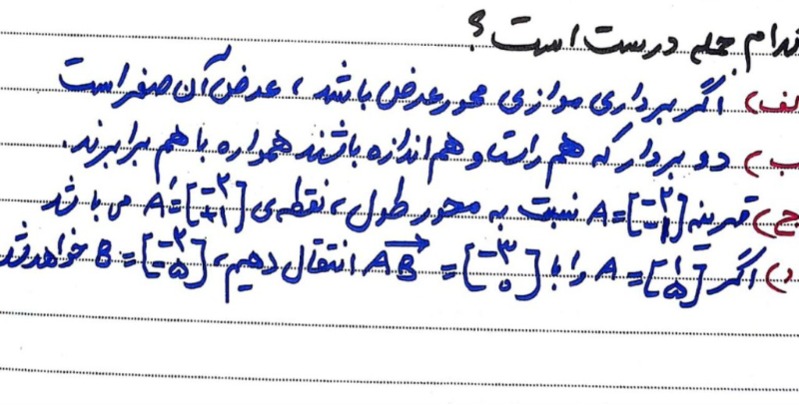 کدام جمله درست است؟
الف) اگر برداری موازی محور عرض باشد، عرض آن صفر است
ب) دو بردار که هم راستا و هم اندازه باشند همواره با هم برابرند.
ج) قرینه A=[-۲ -۱] نسبت به محور طول، نقطه‌ی A'=[-۲ +۱] می باشد
د) اگر A=[ ۱ -۵] را با AB=[-۳ ۰] انتقال دهیم، B=[-۳ -۵] خواهد شد